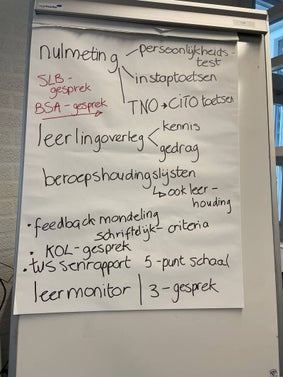 nulmeting
persoonlijkheids-
test
instaptoetsen
TNO → CITO toetsen
SLB-
gesprek
BSA-gesprek
leerlingoverleg
kennis
gedrag
beroepshoudingslijsten
↳ ook leer-
houding
• feedback mondeling
schriftelijk - criteria
• KOL-gesprek
• tussenrapport 5-punt schaal
leermonitor | 3-gesprek